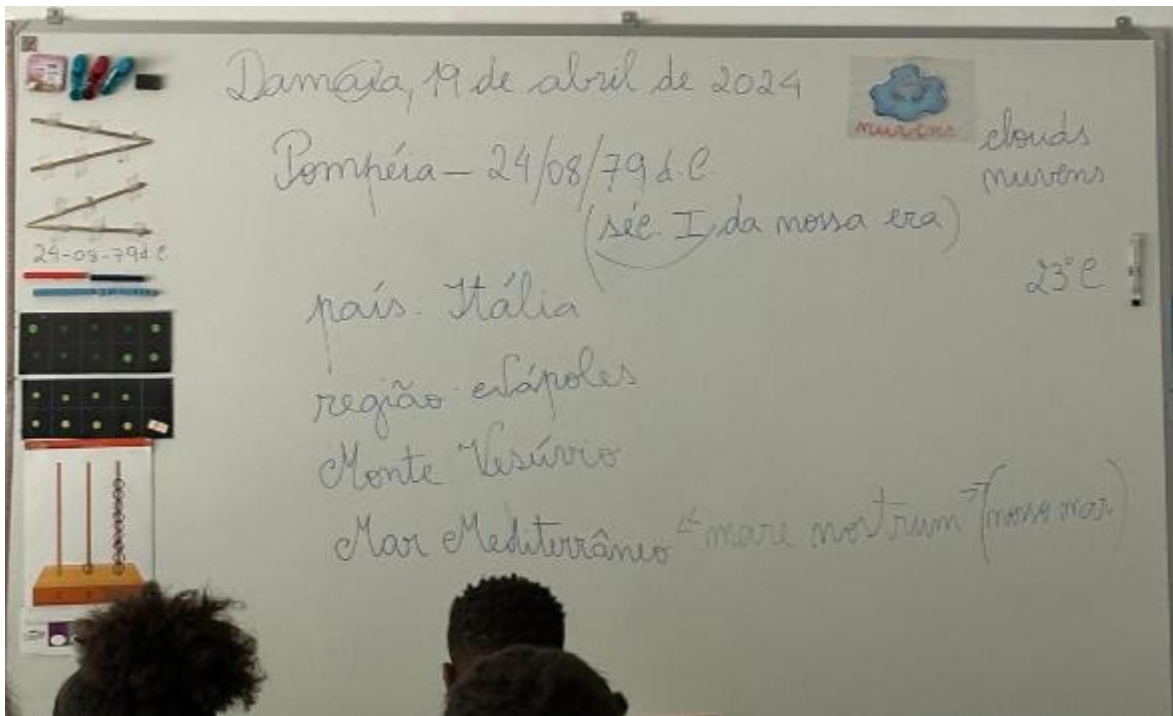 Damaia, 19 de abril de 2024
nuvens
clouds
nuvens
Pompéia - 24/08/79 d.C.
(séc. I, da nossa era)
23°C
24-08-79d.C
país: Itália
região: Nápoles
Monte Vesúvio
Mar Mediterrâneo "mare nostrum" (nosso mar)